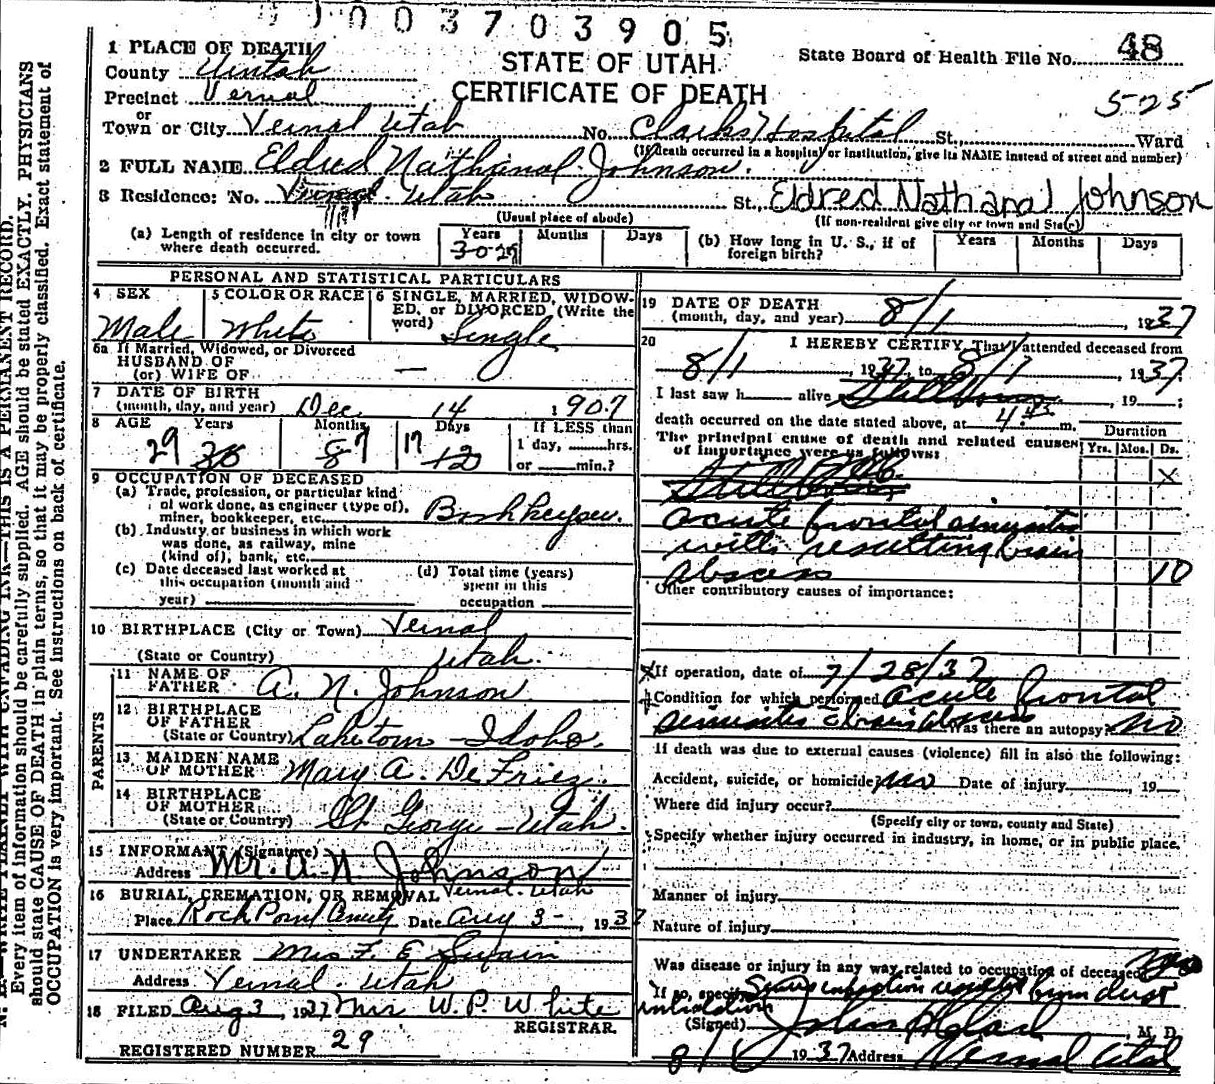 003703905
1 PLACE OF DEATH
STATE OF UTAH
State Board of Health File No. 48
County Uintah
CERTIFICATE OF DEATH
525
Precinct Vernal
or
Town or City Vernal Utah No. Clarks Hospital St. Ward
(If death occurred in a hospital or institution, give its NAME instead of street and number)
2 FULL NAME Eldred Nathanal Johnson.
3 Residence: No. Vernal. Utah St., Eldred Nathanal Johnson
(Usual place of abode) (If non-resident give city or town and State)
(a) Length of residence in city or town where death occurred. Years Months Days
(b) How long in U. S., if of foreign birth? Years Months Days
PERSONAL AND STATISTICAL PARTICULARS
4 SEX Male
5 COLOR OR RACE White
6 SINGLE, MARRIED, WIDOWED, OR DIVORCED (Write the word) Single
6a If Married, Widowed, or Divorced
HUSBAND OF
(or) WIFE OF —
7 DATE OF BIRTH
(month, day, and year) Dec 14 1907
8 AGE Years Months Days If LESS than
29 7 17 1 day, hrs.
or min.?
9 OCCUPATION OF DECEASED
(a) Trade, profession, or particular kind
of work done, as engineer (type of),
miner, bookkeeper, etc. Bookkeeper.
(b) Industry or business in which work
was done, as railway, mine
(kind of), bank, etc.
(c) Date deceased last worked at
this occupation (month and
year)
(d) Total time (years)
spent in this
occupation
10 BIRTHPLACE (City or Town) Vernal
(State or Country) Utah.
PARENTS
11 NAME OF
FATHER A. N. Johnson
12 BIRTHPLACE
OF FATHER
(State or Country) Laketown - Idaho.
13 MAIDEN NAME
OF MOTHER Mary A. DeFriez.
14 BIRTHPLACE
OF MOTHER
(State or Country) St George - Utah.
15 INFORMANT (Signature)
Address Mr. A. N. Johnson
Vernal. Utah
16 BURIAL, CREMATION, OR REMOVAL
Place Rock Point Date Aug 3 - 1937
17 UNDERTAKER Mrs F. E. Swain
Address Vernal. Utah
18 FILED Aug 3, 1937 Mrs W. P. White
REGISTRAR.
REGISTERED NUMBER 29
19 DATE OF DEATH
(month, day, and year) 8/1, 1937
20 I HEREBY CERTIFY, That I attended deceased from
8/1, 1937, to 8/1, 1937.
I last saw h alive Stillborn, 19 ;
death occurred on the date stated above, at 4:45 m.
Duration
The principal cause of death and related causes Yrs. Mos. Ds.
of importance were as follows:
Stillborn
acute frontal sinusitis
with resulting brain
abscess 10
Other contributory causes of importance:
If operation, date of 7/28/37
Condition for which performed acute frontal
sinusitis & brain abscess Was there an autopsy? no
If death was due to external causes (violence) fill in also the following:
Accident, suicide, or homicide? no Date of injury, 19
Where did injury occur?
(Specify city or town, county and State)
Specify whether injury occurred in industry, in home, or in public place.
Manner of injury
Nature of injury
Was disease or injury in any way related to occupation of deceased?
If so, specify Sinus infection resulted from dust
(Signed) John, M. D.
1937 Address Vernal Utah
Every item of information should be carefully supplied. AGE should be stated EXACTLY. PHYSICIANS
should state CAUSE OF DEATH in plain terms, so that it may be properly classified. Exact statement of
OCCUPATION is very important. See instructions on back of certificate.